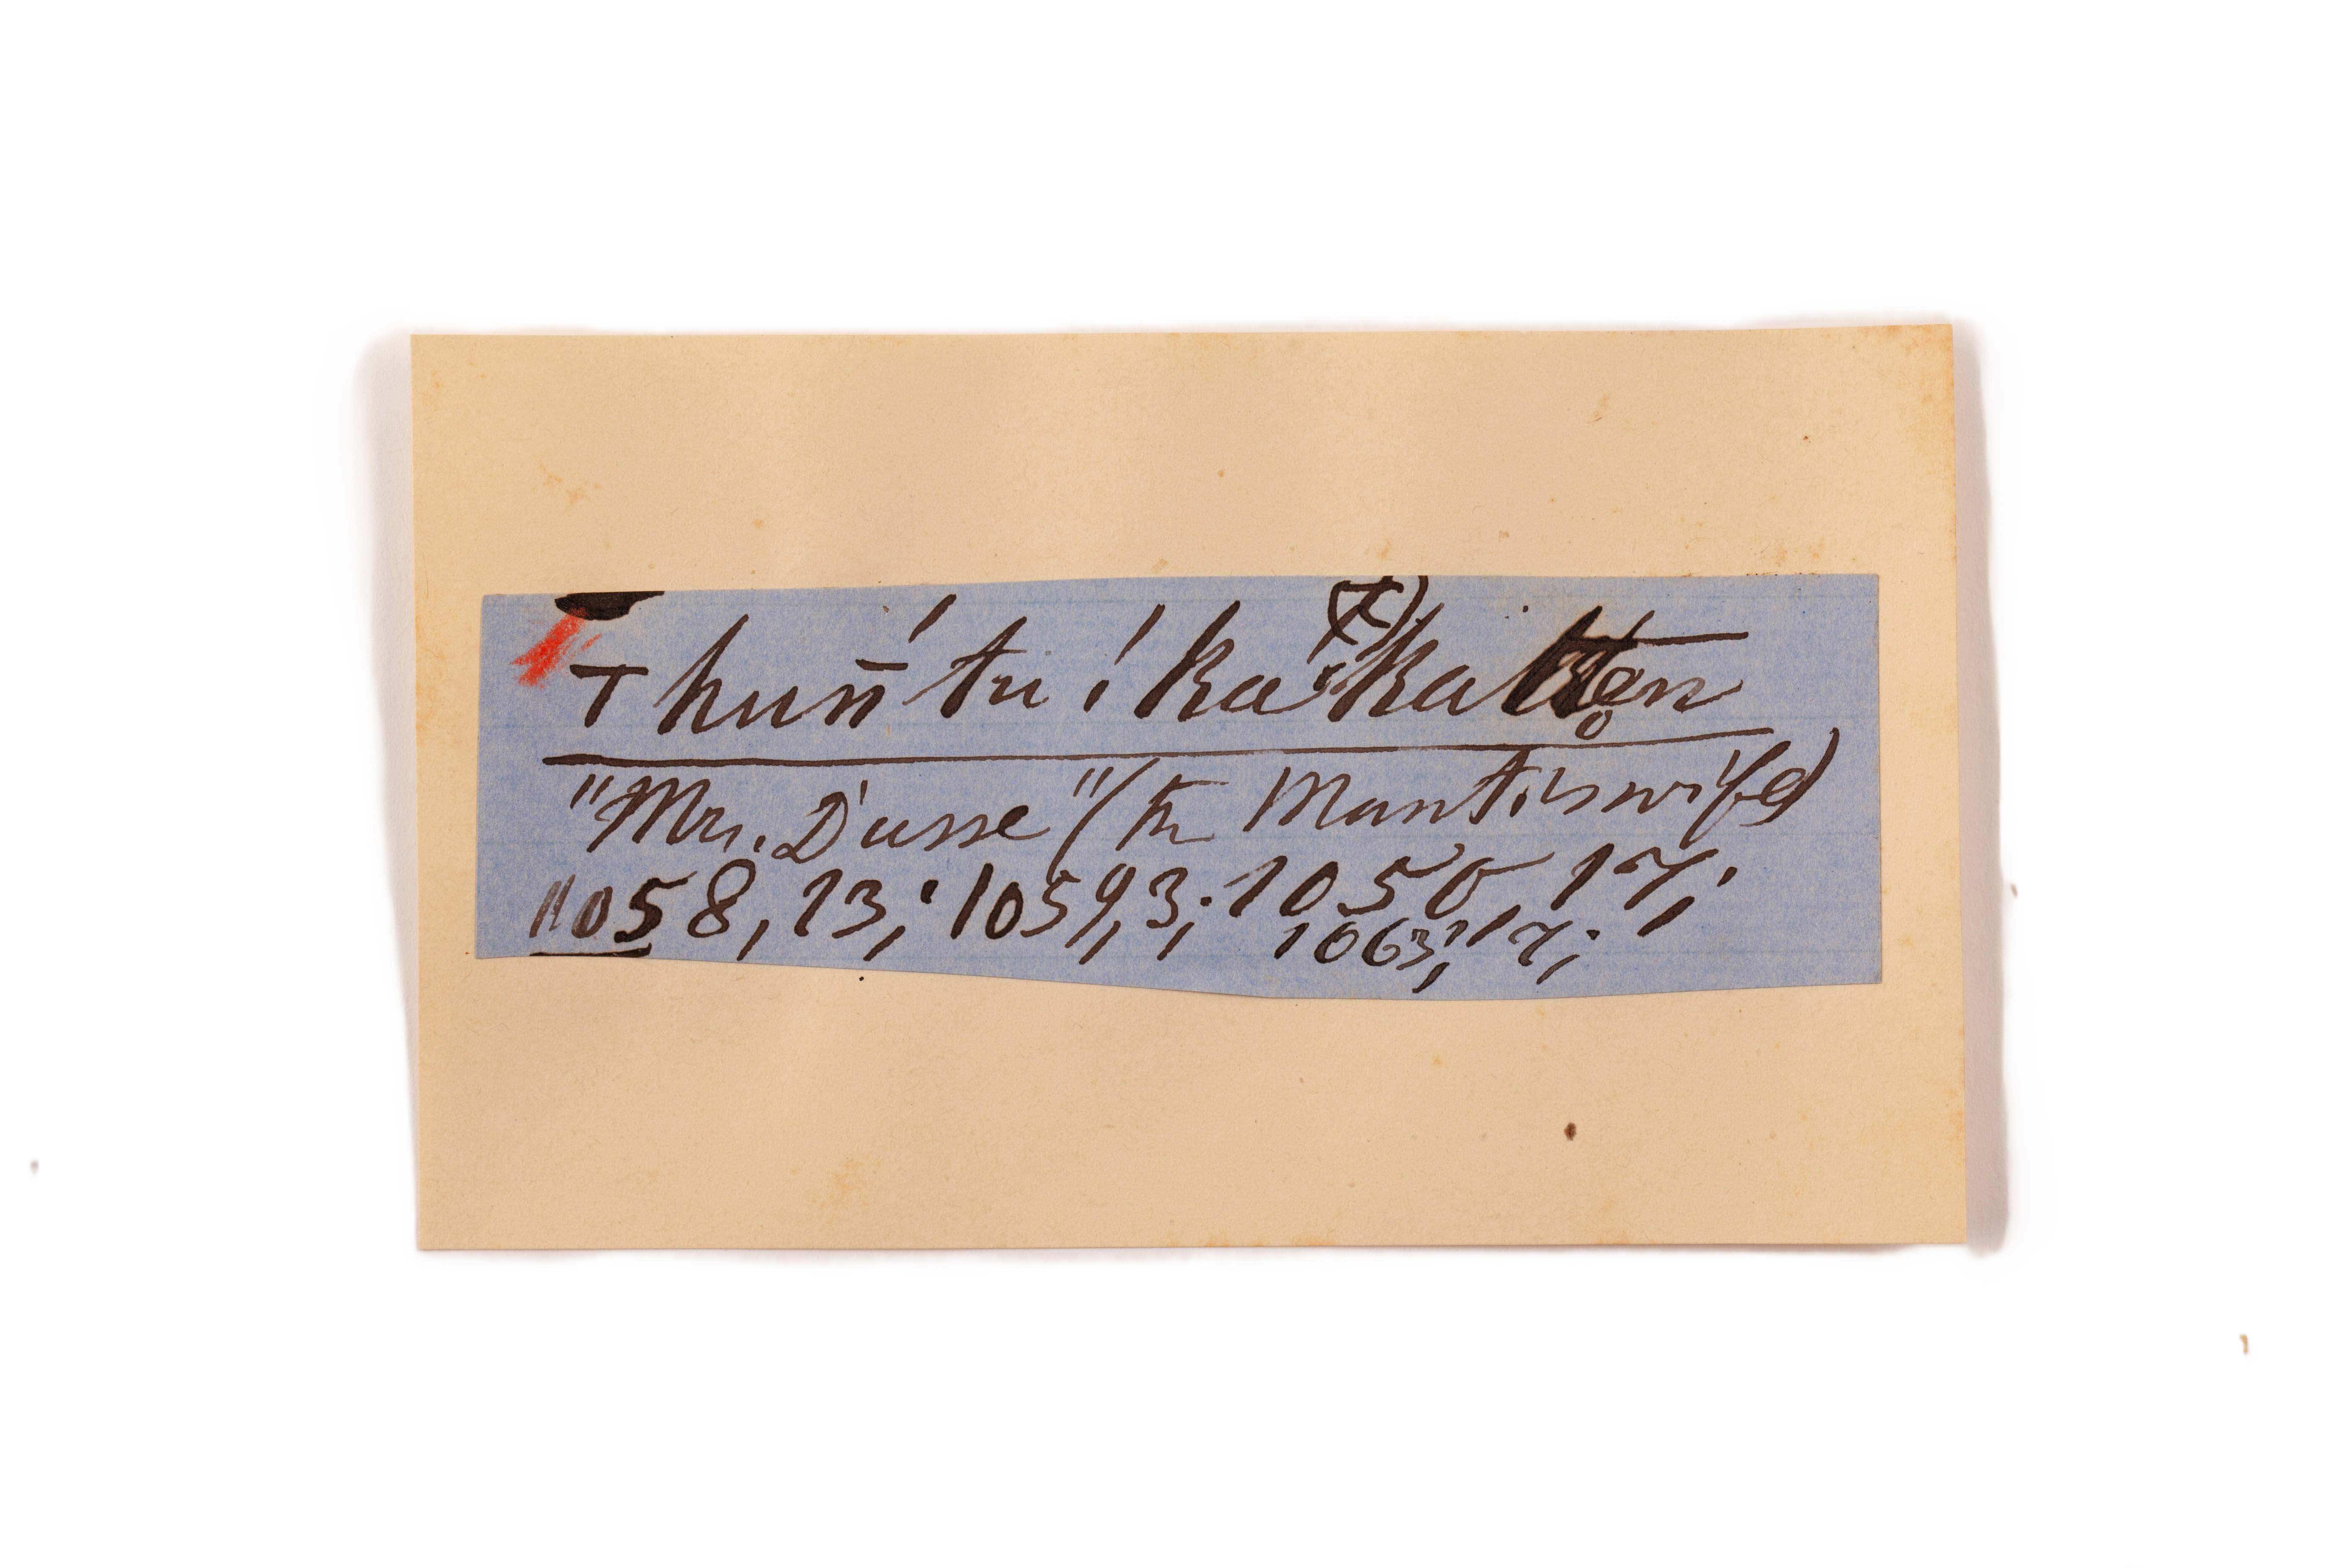 ⊤hun̄́ tu ǃkaǃkatten
"Mrs. Dasse" (the Mantis wife)
1058, 13; 1059, 3; 1050 17;
1063, 17;